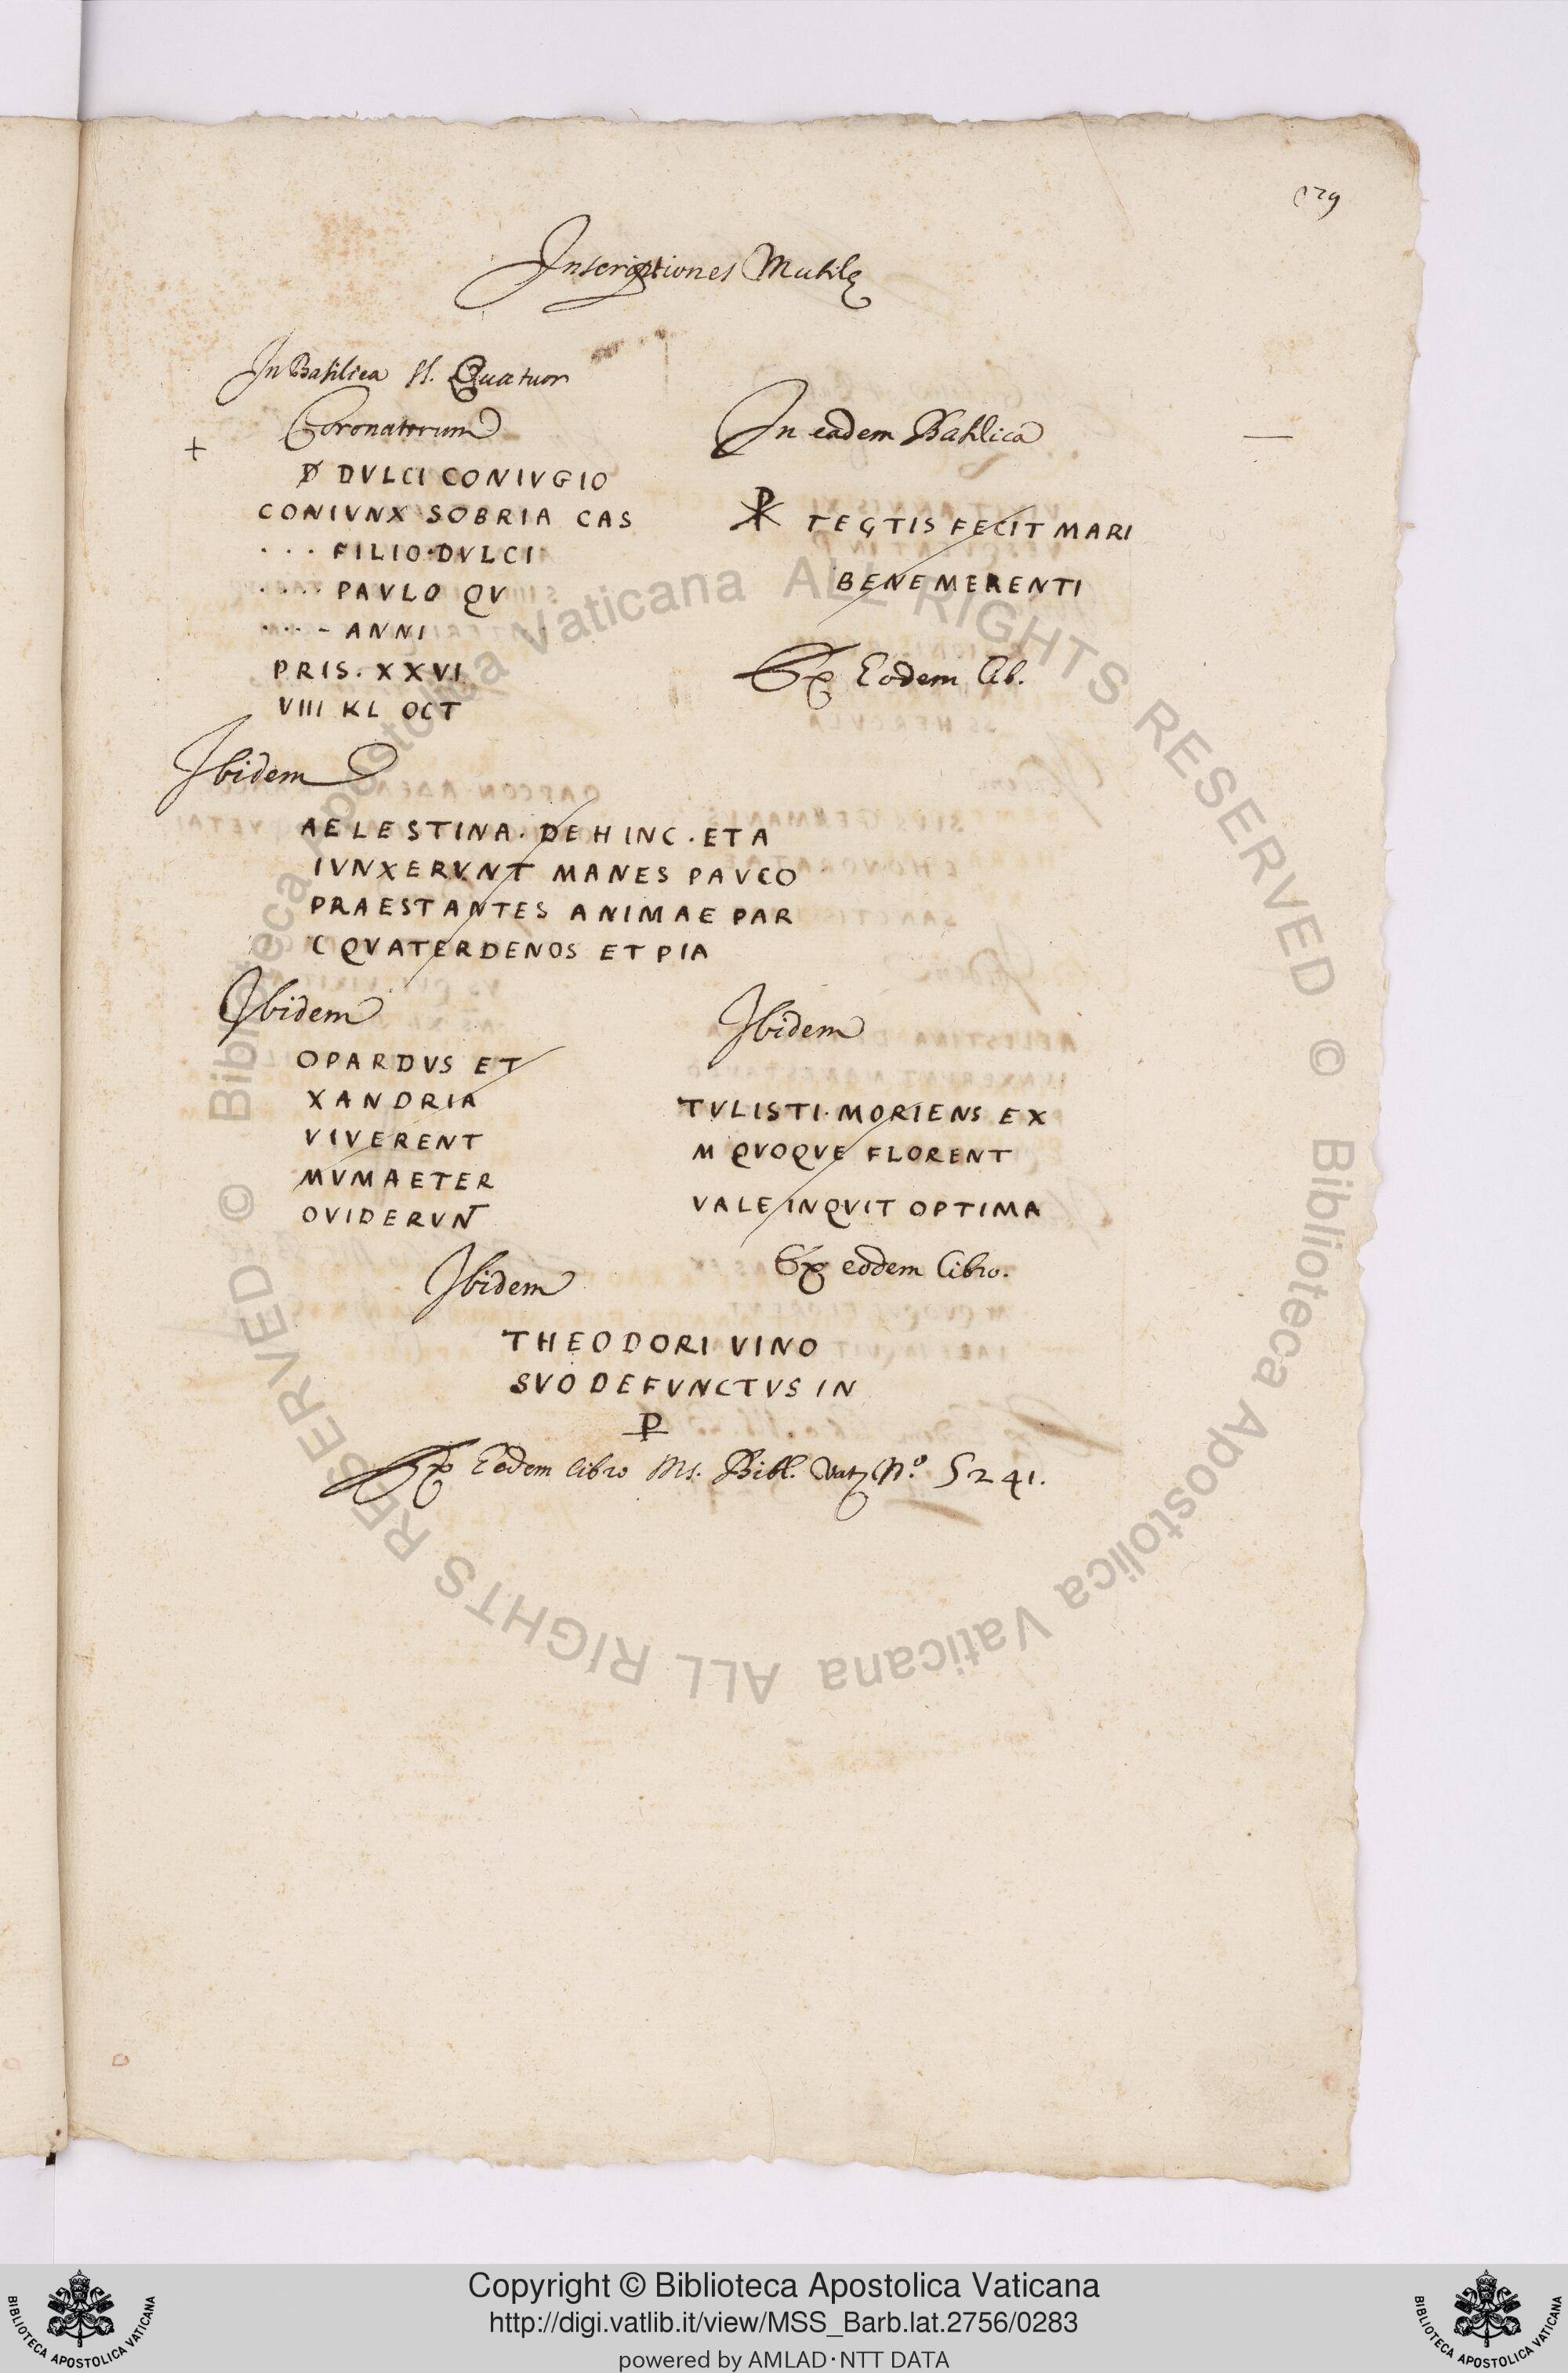 129
Inscriptiones Mutilę
In Basilica SS. Quatuor
Coronatorum
+
DVLCI CONIVGIO
CONIVNX SOBRIA CAS
... FILIO·DVLCI
.... PAVLO QV
.... ANNI
PRIS. XXVI
VIII KL OCT
In eadem Basilica
☧ TEGTIS FECIT MARI
BENEMERENTI
Ex Eodem lib.
Ibidem
AELESTINA. DEHINC. ETA
IVNXERVNT MANES PAVCO
PRAESTANTES ANIMAE PAR
C QVATERDENOS ET PIA
Ibidem
OPARDVS ET
XANDRIA
VIVERENT
MVMAETER
OVIDERVNT
Ibidem
TVLISTI. MORIENS EX
M QVOQVE FLORENT
VALE INQVIT OPTIMA
Ex eodem libro.
Ibidem
THEODORI VINO
SVO DEFVNCTVS IN
Ex Eodem libro Ms. Bibl. Vat. N.º 5241.
Biblioteca Apostolica Vaticana ALL RIGHTS RESERVED ©
Biblioteca Apostolica Vaticana ALL RIGHTS RESERVED ©
Copyright © Biblioteca Apostolica Vaticana
http://digi.vatlib.it/view/MSS_Barb.lat.2756/0283
powered by AMLAD·NTT DATA
BIBLIOTECA APOSTOLICA VATICANA
BIBLIOTECA APOSTOLICA VATICANA